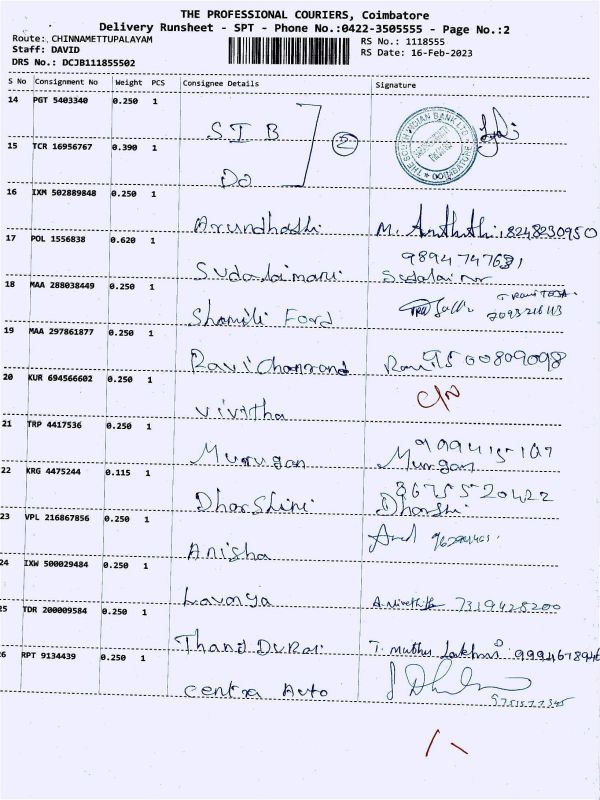 THE PROFESSIONAL COURIERS, Coimbatore
Delivery Runsheet - SPT - Phone No.:0422-3505555 - Page No.:2
Route: CHINNAMETTUPALAYAM
Staff: DAVID
DRS No.: DCJB111855502
RS No.: 1118555
RS Date: 16-Feb-2023
S No Consignment No Weight PCS Consignee Details Signature
14 PGT 5403340 0.250 1
SIB
2
15 TCR 16956767 0.390 1
Do
16 IXM 502889848 0.250 1
Arundhathi M. 8248230950
17 POL 1556838 0.620 1
9894747681
Sudalaimani
18 MAA 288038449 0.250 1
Shamili Ford
19 MAA 297861877 0.250 1
Ravichandrand Ravi 9500809098
20 KUR 694566602 0.250 1
Vivitha C/N
21 TRP 4417536 0.250 1
Murugan Murugan
22 KRG 4475244 0.115 1
8675520422
Dharshini Dharshi
23 VPL 216867856 0.250 1
Anisha
24 IXW 500029484 0.250 1
Lavanya 7319428200
25 TDR 200009584 0.250 1
Thangi Durai T. muthu Lakhmi 999467894
26 RPT 9134439 0.250 1
centra Auto